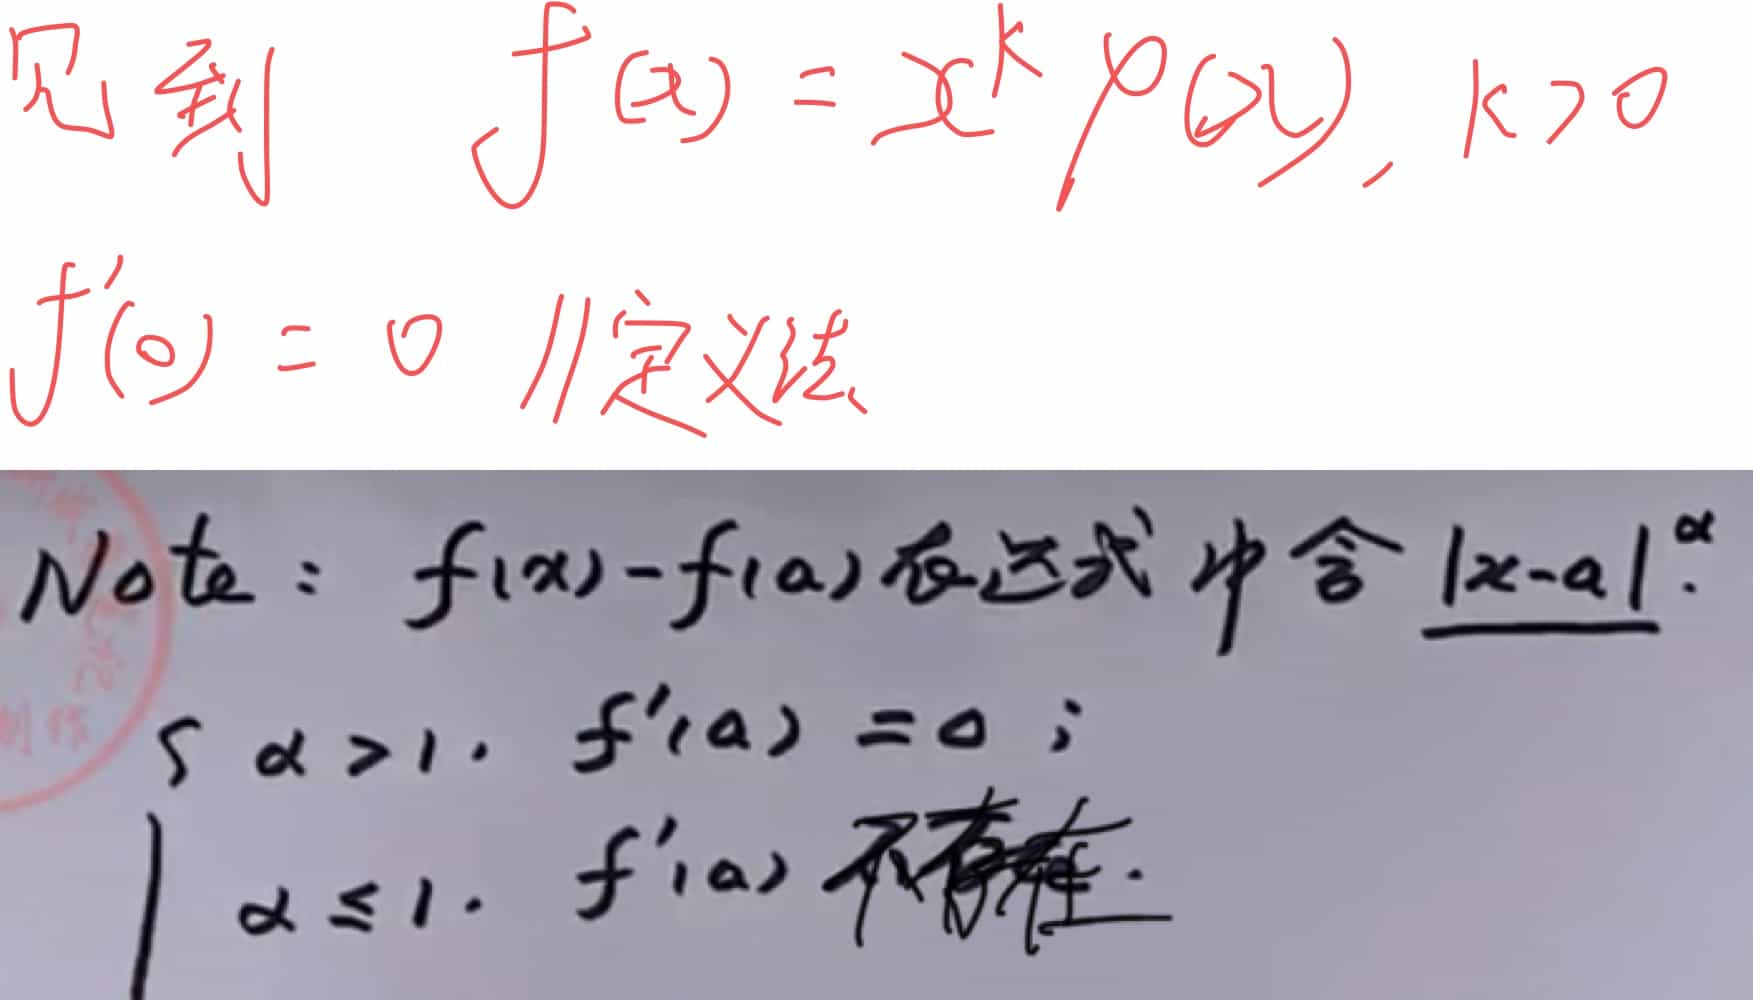 见到 f(x) = x^k φ(x), k>0
f'(0) = 0 //定义法
Note: f(x)-f(a)表达式中含 |x-a|^α.
{ α>1. f'(a) =0;
α≤1. f'(a) 不存在.